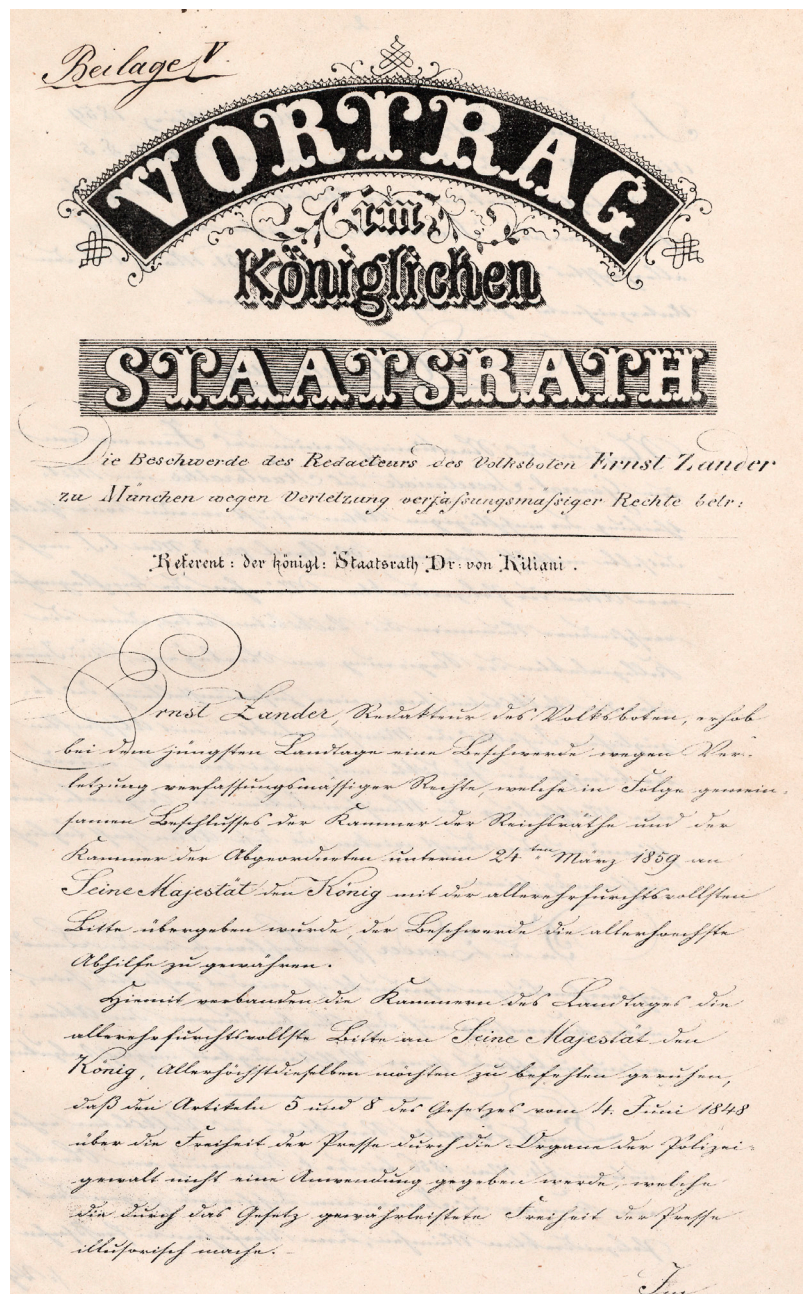 Beilage V
VORTRAG
im
Königlichen
STAATSRATH
Die Beschwerde des Redacteurs des Volksboten Ernst Zander
zu München wegen Verletzung verfassungsmässiger Rechte betr:
Referent: der königl: Staatsrath Dr: von Kiliani.
Ernst Zander, Redakteur des Volksboten, erhob
bei dem jüngsten Landtage eine Beschwerde wegen Ver-
letzung verfassungsmässiger Rechte, welche in Folge gemein-
samen Beschlusses der Kammer der Reichsräthe und der
Kammer der Abgeordneten unterm 24ten März 1859 an
Seine Majestät den König mit der allerehrfurchtsvollsten
Bitte übergeben wurde, der Beschwerde die allerhoechste
Abhilfe zu gewähren.
Hiemit verbanden die Kammern des Landtages die
allerehrfurchtsvollste Bitte an Seine Majestät den
König, Allerhöchstdieselben möchten zu befehlen geruhen,
daß den Artikeln 5 und 8 des Gesetzes vom 4. Juni 1848
über die Freiheit der Presse durch die Organe der Polizei-
gewalt nicht eine Anwendung gegeben werde, welche
die durch das Gesetz gewährleistete Freiheit der Presse
illusorisch mache. -
Im